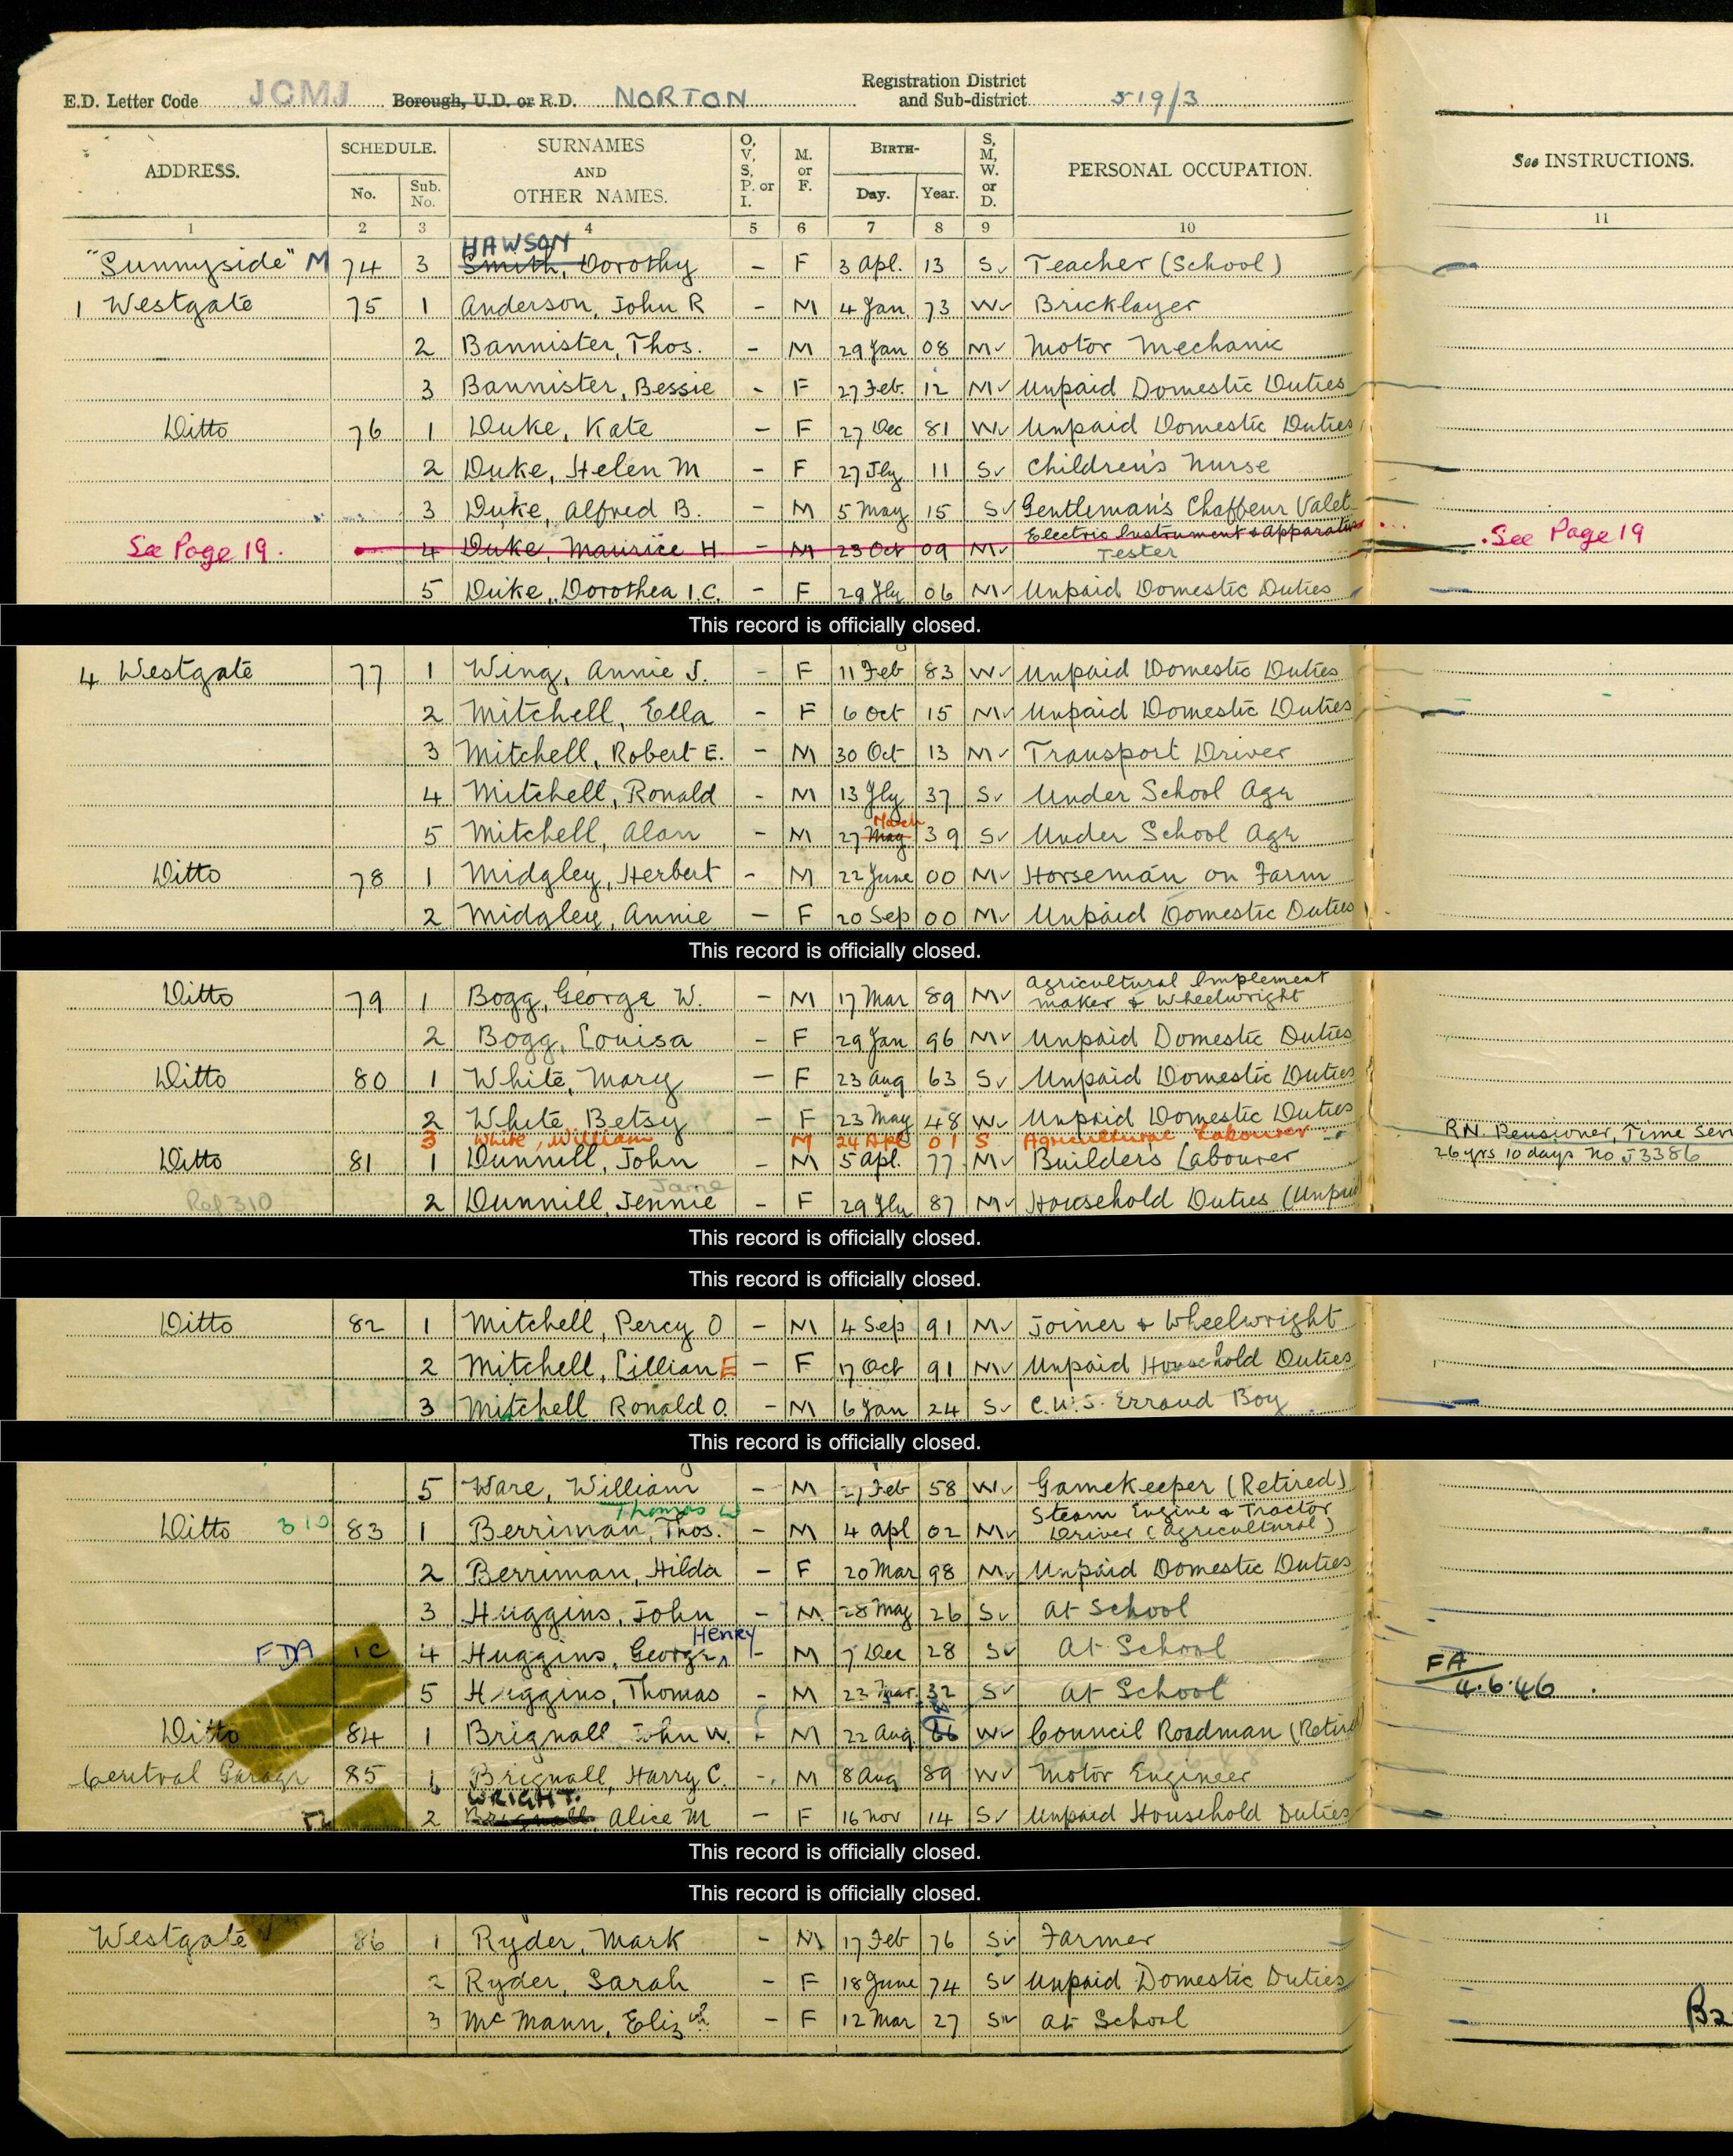 E.D. Letter Code JCMJ Borough, U.D. or R.D. NORTON Registration District and Sub-district 519/3
ADDRESS. SCHEDULE. No. Sub. No. SURNAMES AND OTHER NAMES. O, V, S, P. or I. M. or F. BIRTH- Day. Year. S, M, W. or D. PERSONAL OCCUPATION. See INSTRUCTIONS.
1 2 3 4 5 6 7 8 9 10 11
HAWSON
"Sunnyside" M 74 3 Smith, Dorothy - F 3 Apl. 13 S Teacher (School)
1 Westgate 75 1 Anderson, John R - M 4 Jan. 73 W Bricklayer
2 Bannister, Thos. - M 29 Jan 08 M Motor Mechanic
3 Bannister, Bessie - F 27 Feb. 12 M Unpaid Domestic Duties
Ditto 76 1 Duke, Kate - F 27 Dec 81 W Unpaid Domestic Duties
2 Duke, Helen M - F 27 Jly 11 S Children's Nurse
3 Duke, Alfred B. - M 5 May 15 S Gentleman's Chaffeur Valet
See Page 19. 4 Duke, Maurice H - M 23 Oct 09 M Electric Instrument & Apparatus Tester See Page 19
5 Duke, Dorothea I.C. - F 29 Jly 06 M Unpaid Domestic Duties
This record is officially closed.
4 Westgate 77 1 Wing, Annie J. - F 11 Feb 83 W Unpaid Domestic Duties
2 Mitchell, Ella - F 6 Oct 15 M Unpaid Domestic Duties
3 Mitchell, Robert E. - M 30 Oct 13 M Transport Driver
4 Mitchell, Ronald - M 13 Jly 37 S Under School Age
March
5 Mitchell, Alan - M 27 May 39 S Under School Age
Ditto 78 1 Midgley, Herbert - M 22 June 00 M Horseman on Farm
2 Midgley, Annie - F 20 Sep 00 M Unpaid Domestic Duties
This record is officially closed.
Ditto 79 1 Bogg, George W. - M 17 Mar 89 M Agricultural Implement maker & Wheelwright
2 Bogg, Louisa - F 29 Jan 96 M Unpaid Domestic Duties
Ditto 80 1 White, Mary - F 23 Aug 63 S Unpaid Domestic Duties
2 White Betsy - F 23 May 48 W Unpaid Domestic Duties
3 White, William M 24 Apl 01 S Agricultural Labourer
Ditto 81 1 Dunnill, John - M 5 Apl. 77 M Builder's Labourer R.N. Pensioner, Time Serv 26 yrs 10 days No J3386
Jane
Ref 310 2 Dunnill, Jennie - F 29 Jly 87 M Household Duties (Unpaid
This record is officially closed.
This record is officially closed.
Ditto 82 1 Mitchell, Percy O - M 4 Sep 91 M Joiner & Wheelwright
2 Mitchell, Lillian E - F 17 Oct 91 M Unpaid Household Duties
3 Mitchell Ronald O. - M 6 Jan 24 S C.W.S. Errand Boy
This record is officially closed.
5 Ware, William - M 27 Feb 58 W Gamekeeper (Retired)
Thomas W
Ditto 310 83 1 Berriman, Thos. - M 4 Apl 02 M Steam Engine & Tractor Driver (Agricultural)
2 Berriman, Hilda - F 20 Mar 98 M Unpaid Domestic Duties
3 Huggins, John - M 28 May 26 S At School
Henry
FDA 1C 4 Huggins, George - M 7 Dec 28 S At School FA 4.6.46
5 Huggins, Thomas - M 23 Mar 32 S At School
Ditto 84 1 Brignall John W. - M 22 Aug 66 W Council Roadman (Retired
Central Garage 85 1 Brignall, Harry C. - M 8 Aug 89 W Motor Engineer
WRIGHT.
2 Brignall, Alice M - F 16 Nov 14 S Unpaid Household Duties
This record is officially closed.
This record is officially closed.
Westgate 86 1 Ryder, Mark - M 17 Feb 76 S Farmer
2 Ryder, Sarah - F 18 June 74 S Unpaid Domestic Duties
3 McMann, Elizth - F 12 Mar 27 S At School